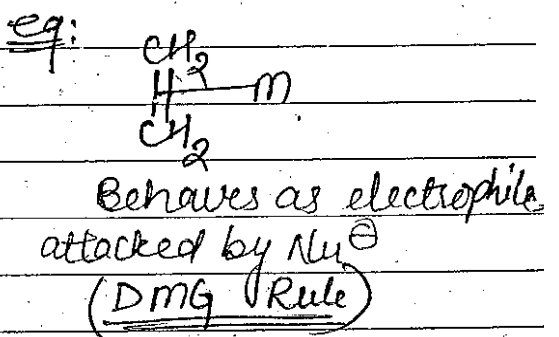 eg:
CH₂
‖—M
CH₂
Behaves as electrophile
attacked by Nu⊖
(DMG Rule)